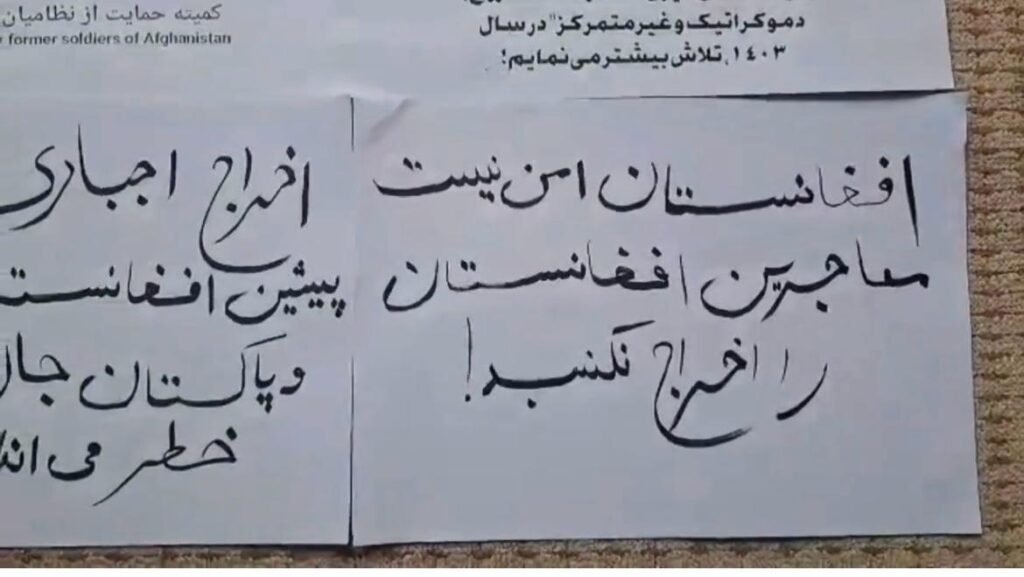 دموکراتیک و غیر متمرکز" در سال
۱٤۰۳، تلاش بیشتر می نمایم؛
کمیته حمایت از نظامیان
former soldiers of Afghanistan
افغانستان امن نیست
مهاجرین افغانستان
را اخراج نکنید!
اخراج اجباری
پیشین افغانست
و پاکستان جان
خطر می اند